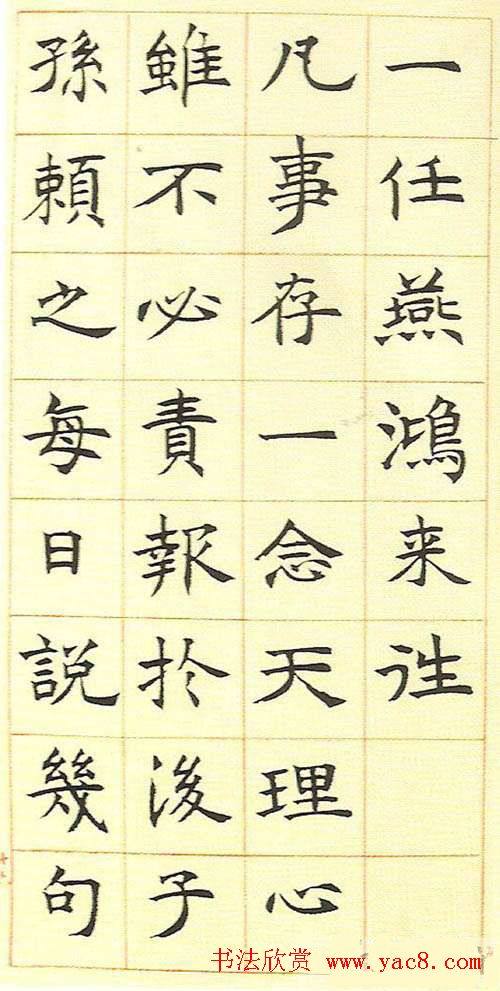 一任燕鴻来往
凡事存一念天理心
雖不必責報於後子
孫賴之每日說幾句
书法欣赏 www.yac8.com